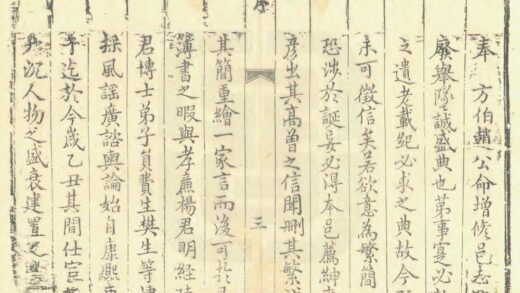 奉 方伯趙公命增修邑志
廢舉隊誠盛典也第事寔必
之遺老載紀必求之典故今
未可徵信矣若欲意為繁簡
恐涉於誕妄必得本邑薦紳
彦出其高曽之信聞刪其繁
其簡重繪一家言而後可於
三
簿書之暇與孝廉楊君明經
君博士弟子員費生樊生等
採風謠廣諮輿論始自康熙
年迄於今歲乙丑其間仕宦
沉人物之盛衰建置之